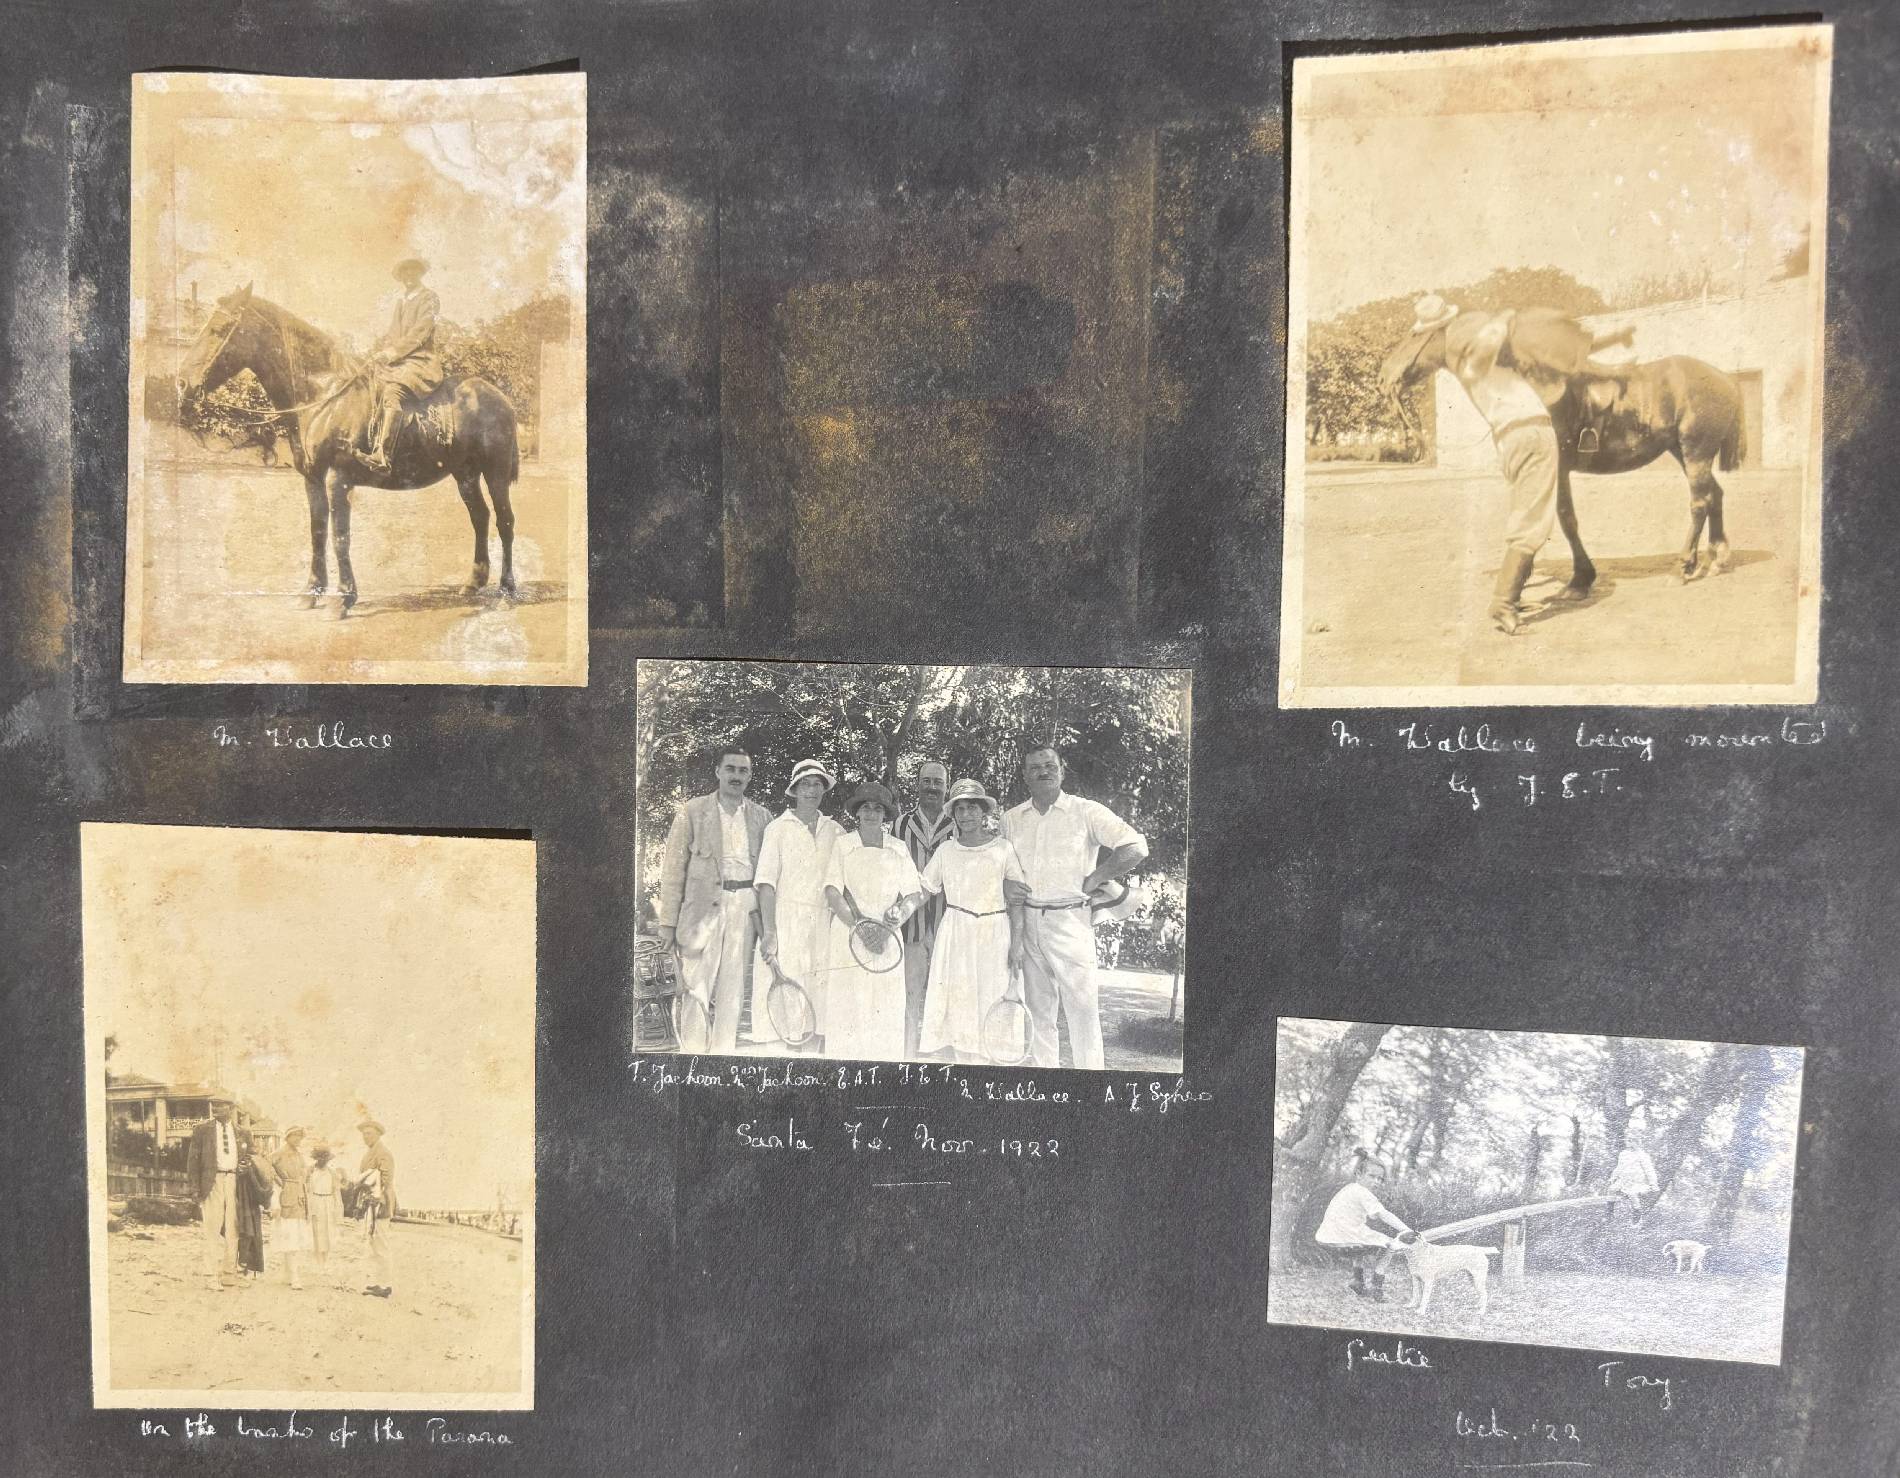 M. Wallace
M. Wallace being mounted
by J. E. T.
T. Jackson. Mrs Jackson. E.A.T. J.E.T. M. Wallace. A. Sykes
Santa Fé. Nov. 1922
on the banks of the Parana
Tony
Oct. '22